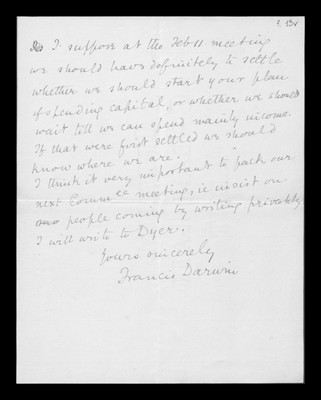 I suppose at the Feb 11 meeting
we should have definitely to settle
whether we should start your plan
of spending capital, or whether we should
wait till we can spend mainly income.
If that were first settled we should
know where we are.
I think it very important to pack our
next Comm^ee meeting, ie insist on
our people coming by writing privately
I will write to Dyer.
Yours sincerely
Francis Darwin